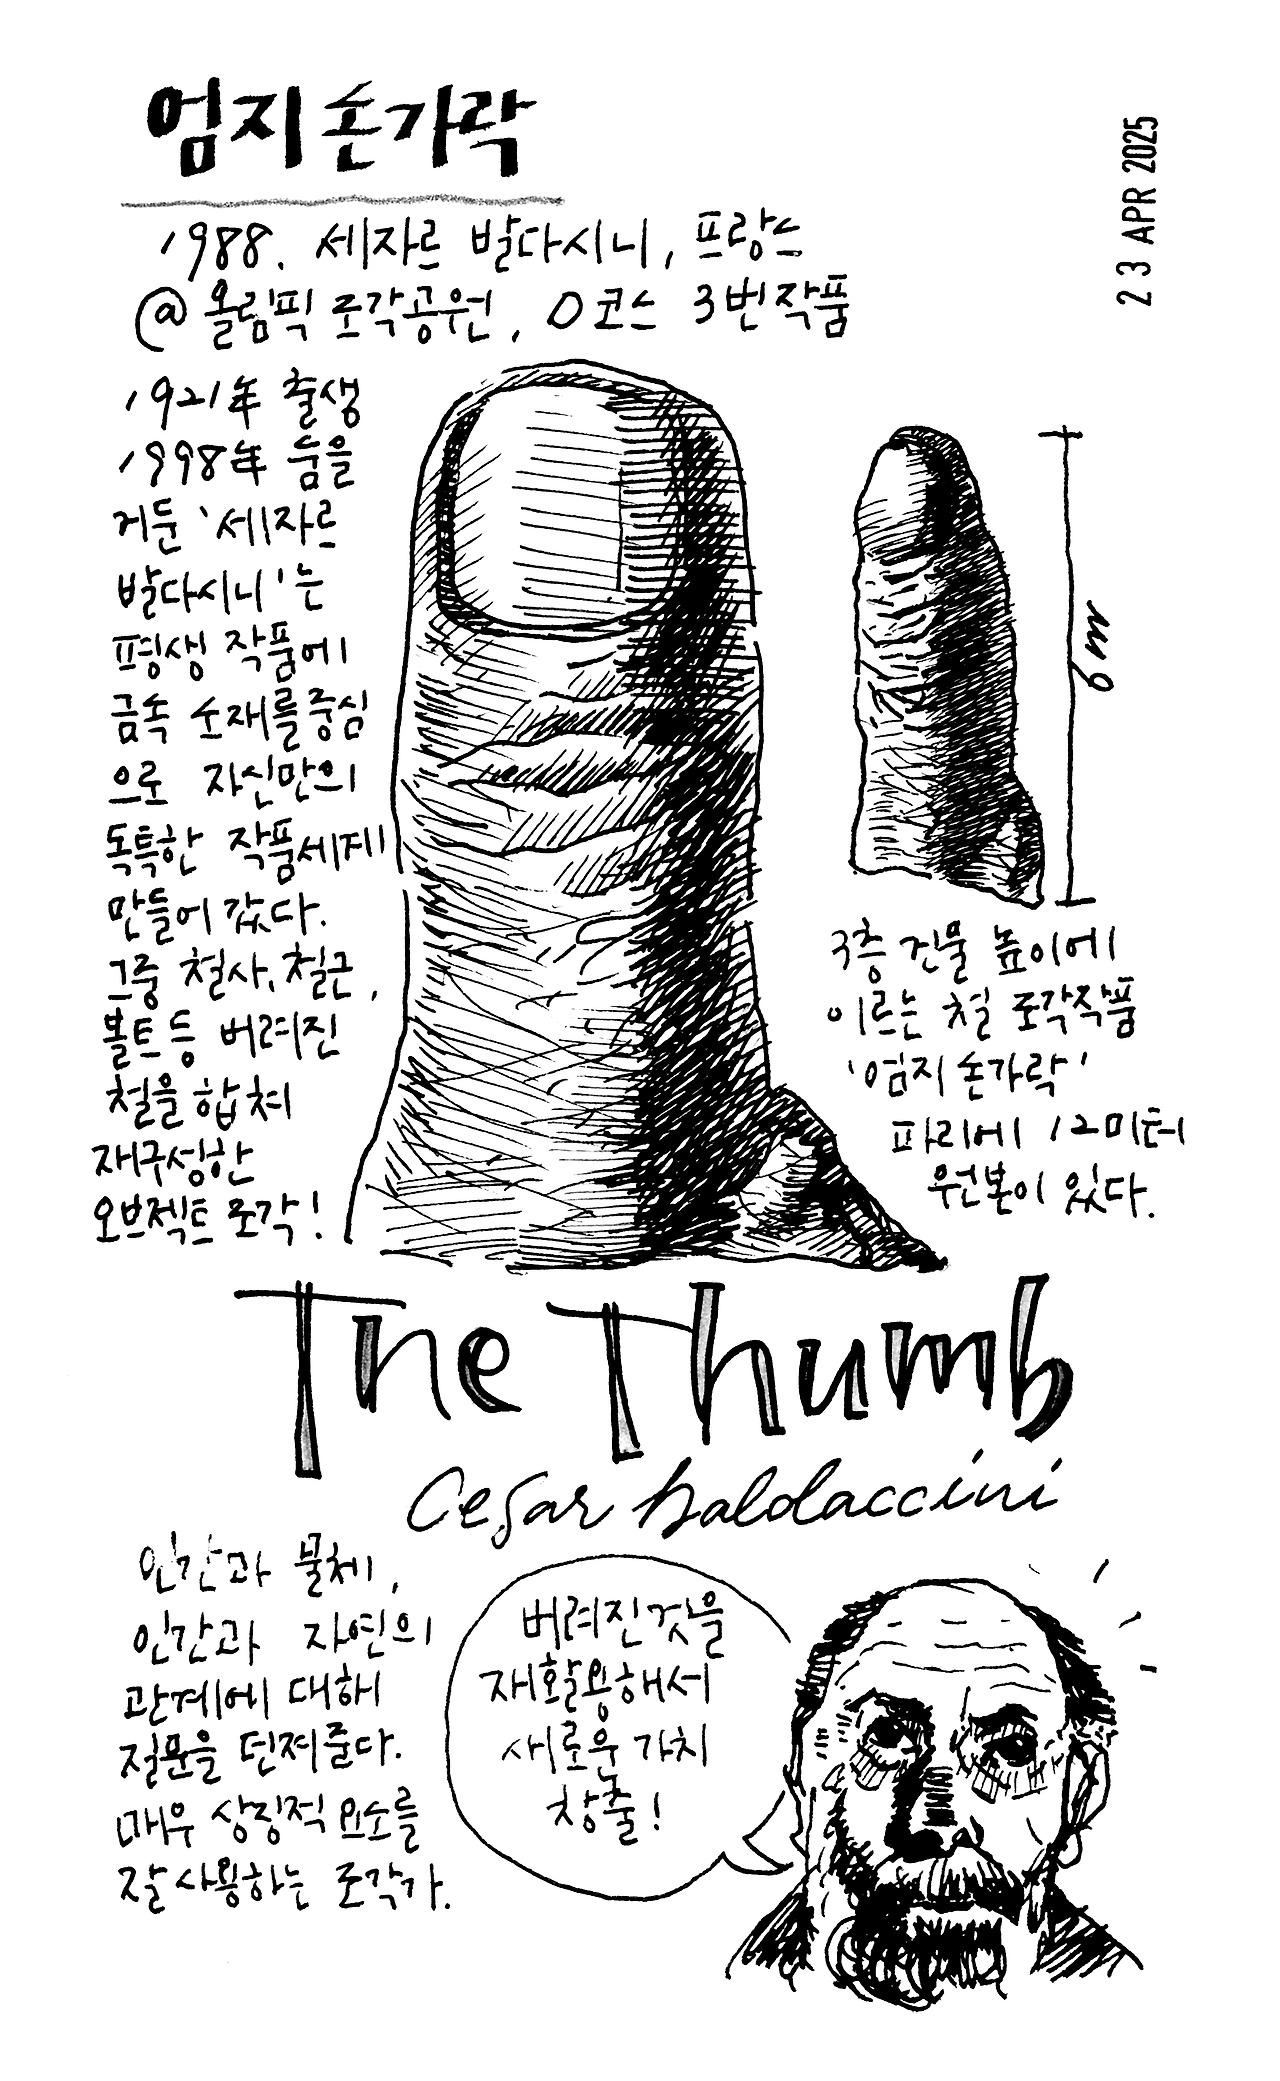 엄지손가락
23 APR 2025
1988. 세자르 발다시니, 프랑스
@ 올림픽 조각공원, D코스 3번작품
1921年 출생
1998年 숨을
거둔 '세자르
발다시니'는
평생 작품에
금속 소재를 중심
으로 자신만의
독특한 작품세계
만들어 갔다.
그중 철사, 철근,
볼트 등 버려진
철을 합쳐
재구성한
오브젝트 조각!
6m
3층 건물 높이에
이르는 철 조각작품
'엄지 손가락'
파리에 12미터
원본이 있다.
The Thumb
Cesar baldaccini
인간과 물체,
인간과 자연의
관계에 대해
질문을 던져준다.
매우 상징적 요소를
잘 사용하는 조각가.
버려진것을
재활용해서
새로운 가치
창출!